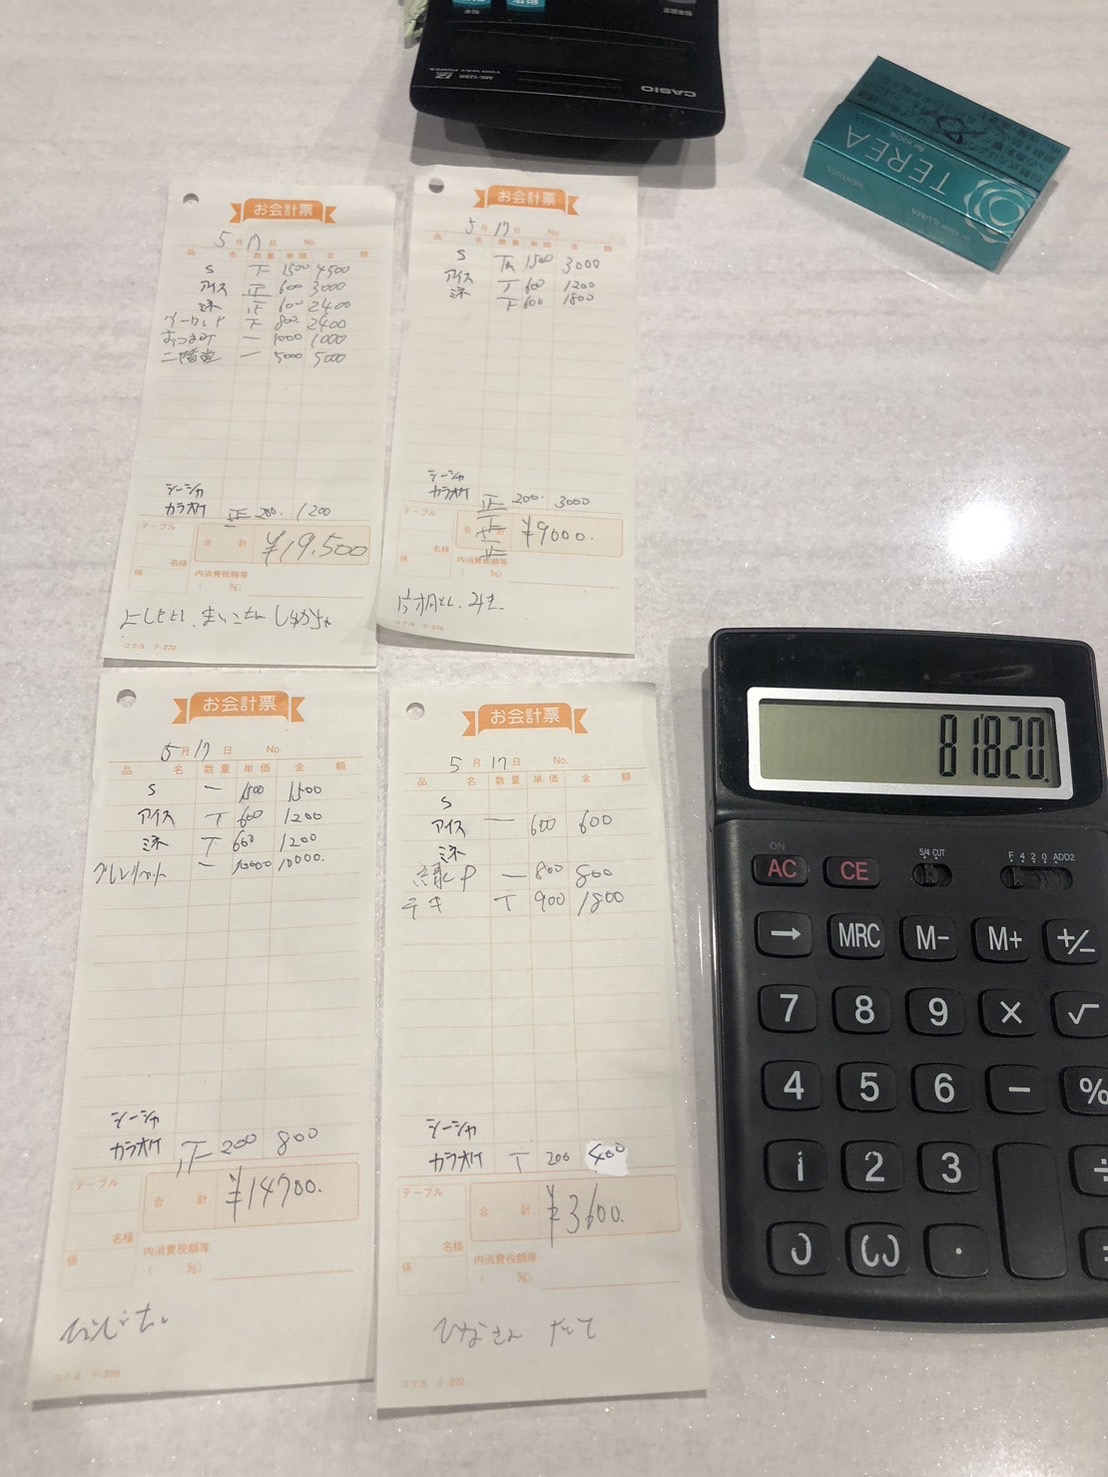 CASIO
MS-12SK
TWO WAY POWER
TEREA
MENTHOL
お会計票
5月17日 No.
品 名 数量 単価 金 額
S 下 1500 4500
アイス 正 600 3000
ミネ 600 2400
下 800 2400
おつまみ 一 1000 1000
二階堂 一 5000 5000
シーシャ
カラオケ 正一 200. 1200
テーブル
合 計 ¥19,500
名様
係 内消費税額等
( %)
コクヨ テ-270
お会計票
5月17日 No.
品 名 数量 単価 金 額
S 1500 3000
アイス T 600 1200
ミネ 下 600 1800
シーシャ
カラオケ 正 正 正 200. 3000
テーブル
合 計 ¥9000.
名様
係 内消費税額等
( %)
コクヨ テ-270
お会計票
5月17日 No.
品 名 数量 単価 金 額
S 一 1500 1500
アイス T 600 1200
ミネ T 600 1200
一 10000 10000.
シーシャ
カラオケ 200 800
テーブル
合 計 ¥14700.
名様
係 内消費税額等
( %)
コクヨ テ-270
お会計票
5月17日 No.
品 名 数量 単価 金 額
S
アイス 一 600 600
ミネ
緑P 一 800 800
テキ T 900 1800
シーシャ
カラオケ T 200 400
テーブル
合 計 ¥3600.
名様
係 内消費税額等
( %)
ひなさん たて
コクヨ テ-270
81820.
ON 5/4 CUT F 4 2 0 ADD2
AC CE
→ MRC M- M+ +/-
7 8 9 × √
4 5 6 − %
1 2 3 ÷
.